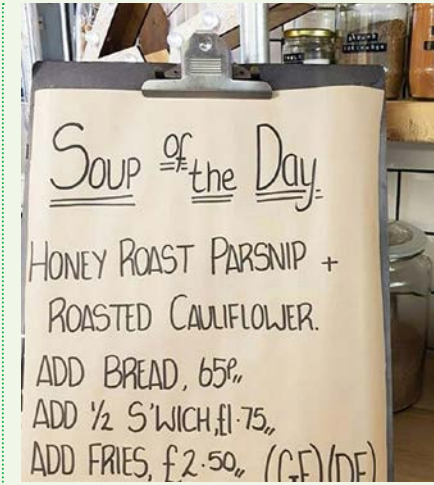 Soup of the Day.
HONEY ROAST PARSNIP +
ROASTED CAULIFLOWER.
ADD BREAD, 65P,,
ADD 1/2 S'WICH,£1.75,,
ADD FRIES, £2.50,, (GF)(DF)